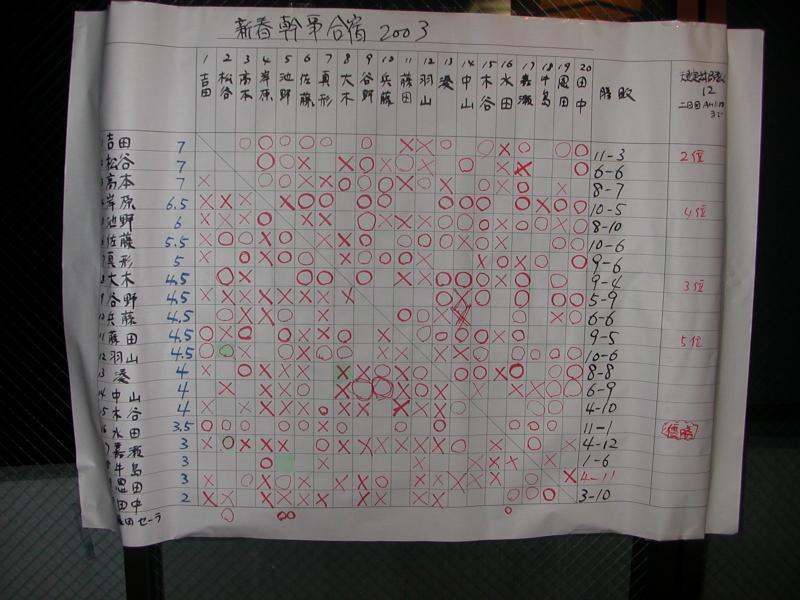 新春幹事合宿 2003
1 2 3 4 5 6 7 8 9 10 11 12 13 14 15 16 17 18 19 20
吉田 松谷 高本 岸原 池野 佐藤 真形 大木 谷野 兵藤 藤田 羽山 湊 中山 木谷 水田 嘉瀬 牛島 恩田 田中 勝敗
12
二日目
吉田 7 11-3 2位
松谷 7 6-6
高本 7 8-7
岸原 6.5 10-5 4位
池野 6 8-10
佐藤 5.5 10-6
真形 5 9-6
大木 4.5 9-4 3位
9 谷野 4.5 5-9
10 兵藤 4.5 6-6
11 藤田 4.5 9-5 5位
12 羽山 4.5 10-6
13 湊 4 8-8
14 中山 4 6-9
15 木谷 4 4-10
16 水田 3.5 11-1 優勝
嘉瀬 3 4-12
牛島 3 1-6
恩田 3 4-11
田中 2 3-10